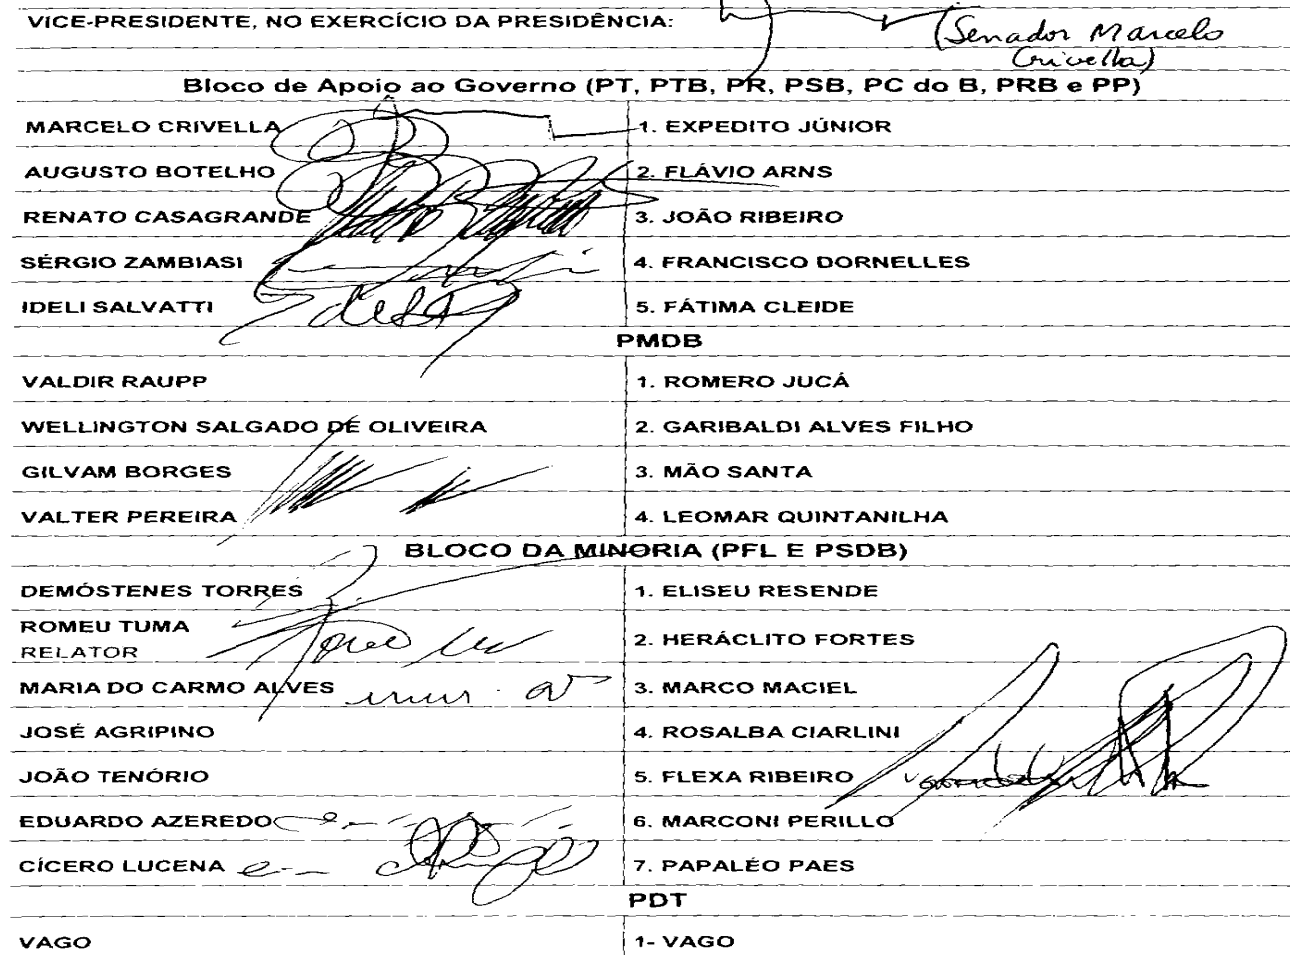 VICE-PRESIDENTE, NO EXERCÍCIO DA PRESIDÊNCIA:
(Senador Marcelo
Crivella)
Bloco de Apoio ao Governo (PT, PTB, PR, PSB, PC do B, PRB e PP)
MARCELO CRIVELLA 1. EXPEDITO JÚNIOR
AUGUSTO BOTELHO 2. FLÁVIO ARNS
RENATO CASAGRANDE 3. JOÃO RIBEIRO
SÉRGIO ZAMBIASI 4. FRANCISCO DORNELLES
IDELI SALVATTI 5. FÁTIMA CLEIDE
PMDB
VALDIR RAUPP 1. ROMERO JUCÁ
WELLINGTON SALGADO DE OLIVEIRA 2. GARIBALDI ALVES FILHO
GILVAM BORGES 3. MÃO SANTA
VALTER PEREIRA 4. LEOMAR QUINTANILHA
BLOCO DA MINORIA (PFL E PSDB)
DEMÓSTENES TORRES 1. ELISEU RESENDE
ROMEU TUMA
RELATOR 2. HERÁCLITO FORTES
MARIA DO CARMO ALVES 3. MARCO MACIEL
JOSÉ AGRIPINO 4. ROSALBA CIARLINI
JOÃO TENÓRIO 5. FLEXA RIBEIRO
EDUARDO AZEREDO 6. MARCONI PERILLO
CÍCERO LUCENA 7. PAPALÉO PAES
PDT
VAGO 1- VAGO